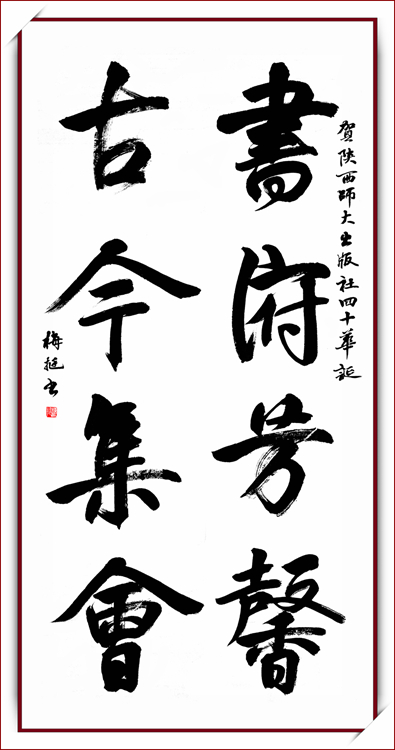 賀陝西師大出版社四十華誕
書府芳馨
古今集會
梅挺書